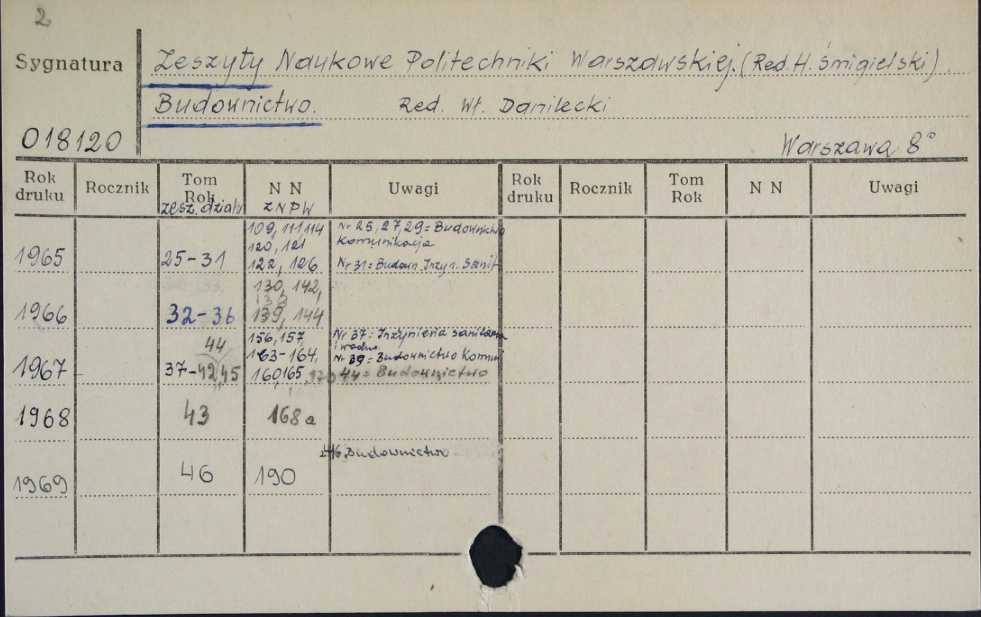 2
Sygnatura
Zeszyty Naukowe Politechniki Warszawskiej. (Red. H. Śmigielski).
Budownictwo. Red. Wł. Danilecki
018120
Warszawa 8°
Rok druku Rocznik Tom Rok N N Uwagi Rok druku Rocznik Tom Rok N N Uwagi
zesz. działu ZNPW
1965 25-31 109, 111 114 120, 121 122, 126 Nr 25, 27, 29 = Budownictwo Komunikacja
Nr 31 = Budown. Inżyn. Sanit.
1966 32-36 130, 142, 133 139, 144
1967 37-42, 45 44 156, 157, 163-164, 160, 165, Nr 37: Inżynieria sanitarna i wodna.
Nr 39 = Budownictwo Komun.
44 = Budownictwo
1968 43 168a
46. Budownictwo
1969 46 190